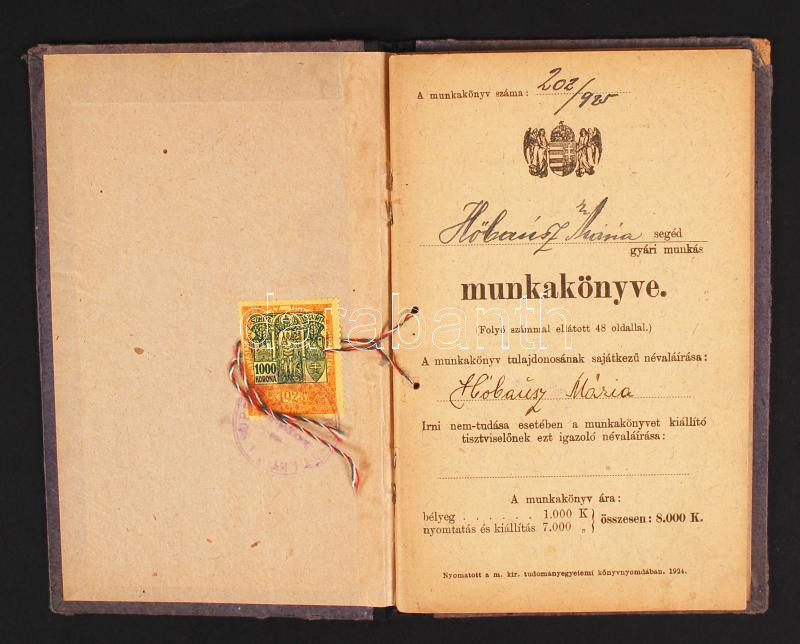 1000
KORONA
1923
A munkakönyv száma: 202/925
Hóbaúsz Mária segéd
gyári munkás
munkakönyve.
(Folyó számmal ellátott 48 oldallal.)
A munkakönyv tulajdonosának sajátkezű névaláírása:
Hóbaúsz Mária
Irni nem-tudása esetében a munkakönyvet kiállító
tisztviselőnek ezt igazoló névaláírása:
A munkakönyv ára:
bélyeg . . . . . . 1.000 K
nyomtatás és kiállítás 7.000 „ } összesen: 8.000 K.
Nyomatott a m. kir. tudományegyetemi könyvnyomdában. 1924.
darabanth